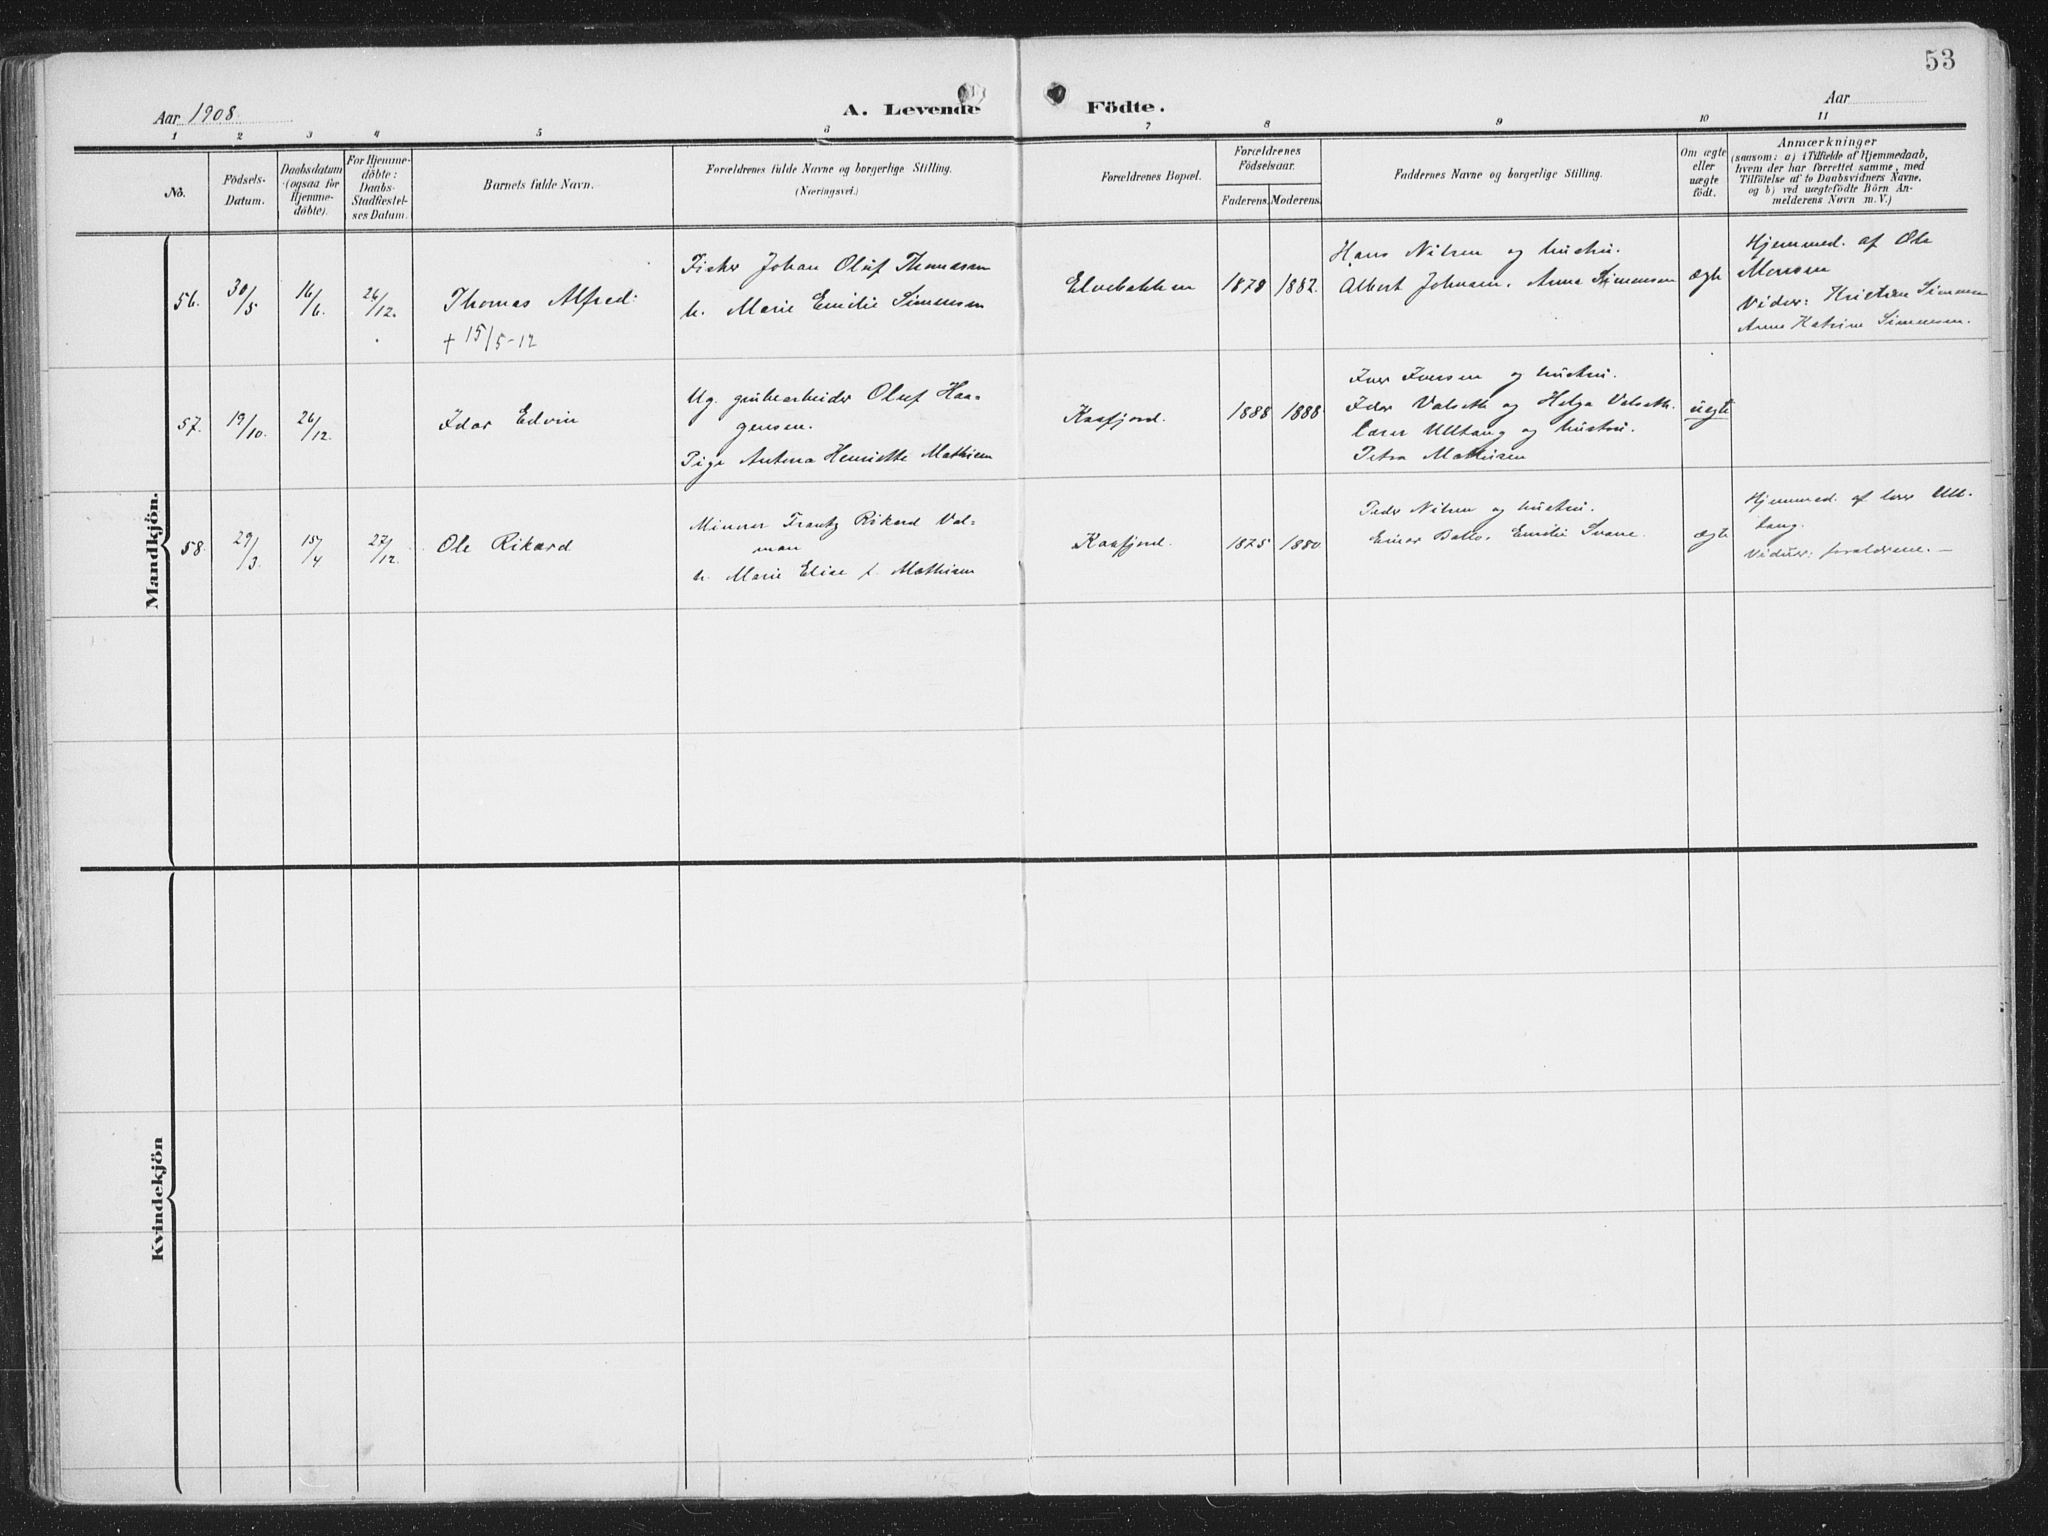 53
Aar 1908.
A. Levende Födte.
Aar
1 2 3 4 5 6 7 8 9 10 11
No.
Födsels-
Datum.
Daabsdatum
(ogsaa for
Hjemme-
döbte).
For Hjemme-
döbte:
Daabs-
Stadfæstel-
ses Datum.
Barnets fulde Navn.
Forældrenes fulde Navne og borgerlige Stilling.
(Næringsvei.)
Forældrenes Bopæl.
Forældrenes
Födselsaar.
Faderens. Moderens.
Faddernes Navne og borgerlige Stilling.
Om ægte
eller
uægte
födt.
Anmærkninger
(saasom: a) i Tilfælde af Hjemmedaab,
hvem der har forrettet samme, med
Tilföielse af to Daabsvidners Navne,
og b) ved uægtefödte Börn An-
melderens Navn m. V.)
Mandkjön.
56. 30/5 16/6. 26/12.
Thomas Alfred.
+ 15/5-12
Fisker Johan Oluf Thomasen
h. Marie Emilie Simensen
Elvebakken
1878 1882.
Hans Nilsen og hustru.
Albert Johnsen. Anna Simensen
ægte
Hjemmed. af Ole
Monsen
Vidner: Kristine Simensen
Anne Katrine Simensen.
57. 19/10. 26/12.
Idar Edvin
Ug. grubearbeider Oluf Haa-
gensen.
Pige Antona Henriette Mathisen
Kaafjord.
1888 1888
Iver Iversen og hustru.
Idar Valseth og Helga Valseth.
Lærer Ulltang og hustru.
Petra Mathisen
uegte
58. 29/3. 15/4 27/12.
Ole Rikard
Minerer Frantz Rikard Val-
man
h. Marie Elise f. Mathisen
Kaafjord.
1875 1880
Peder Nilsen og hustru.
Einar Ballo. Emilie Svane.
ægte
Hjemmed. af lærer Ull-
tang.
Vidner: forældrene. —
Kvindekjön